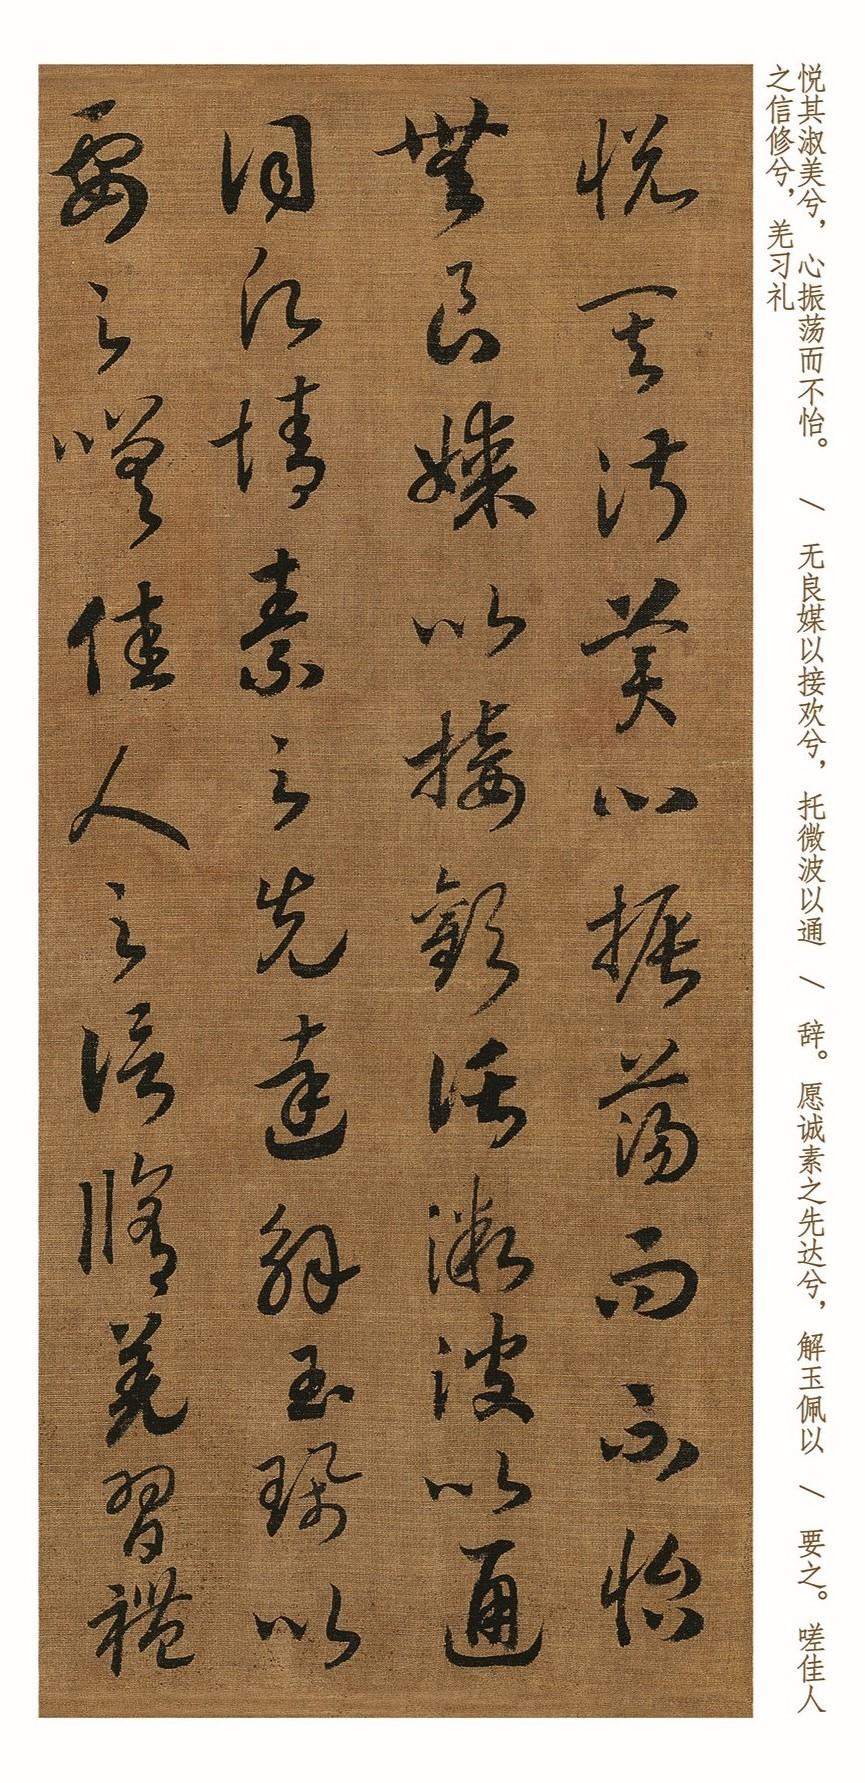 悦其淑美兮，心振荡而不怡。 / 无良媒以接欢兮，托微波以通 / 辞。愿诚素之先达兮，解玉佩以 / 要之。嗟佳人
之信修兮，羌习礼
悅其淑美心振蕩而不怡
無良媒以接歡託微波以通
詞願情素之先達解玉珮以
要之嗟佳人之信脩羌習禮